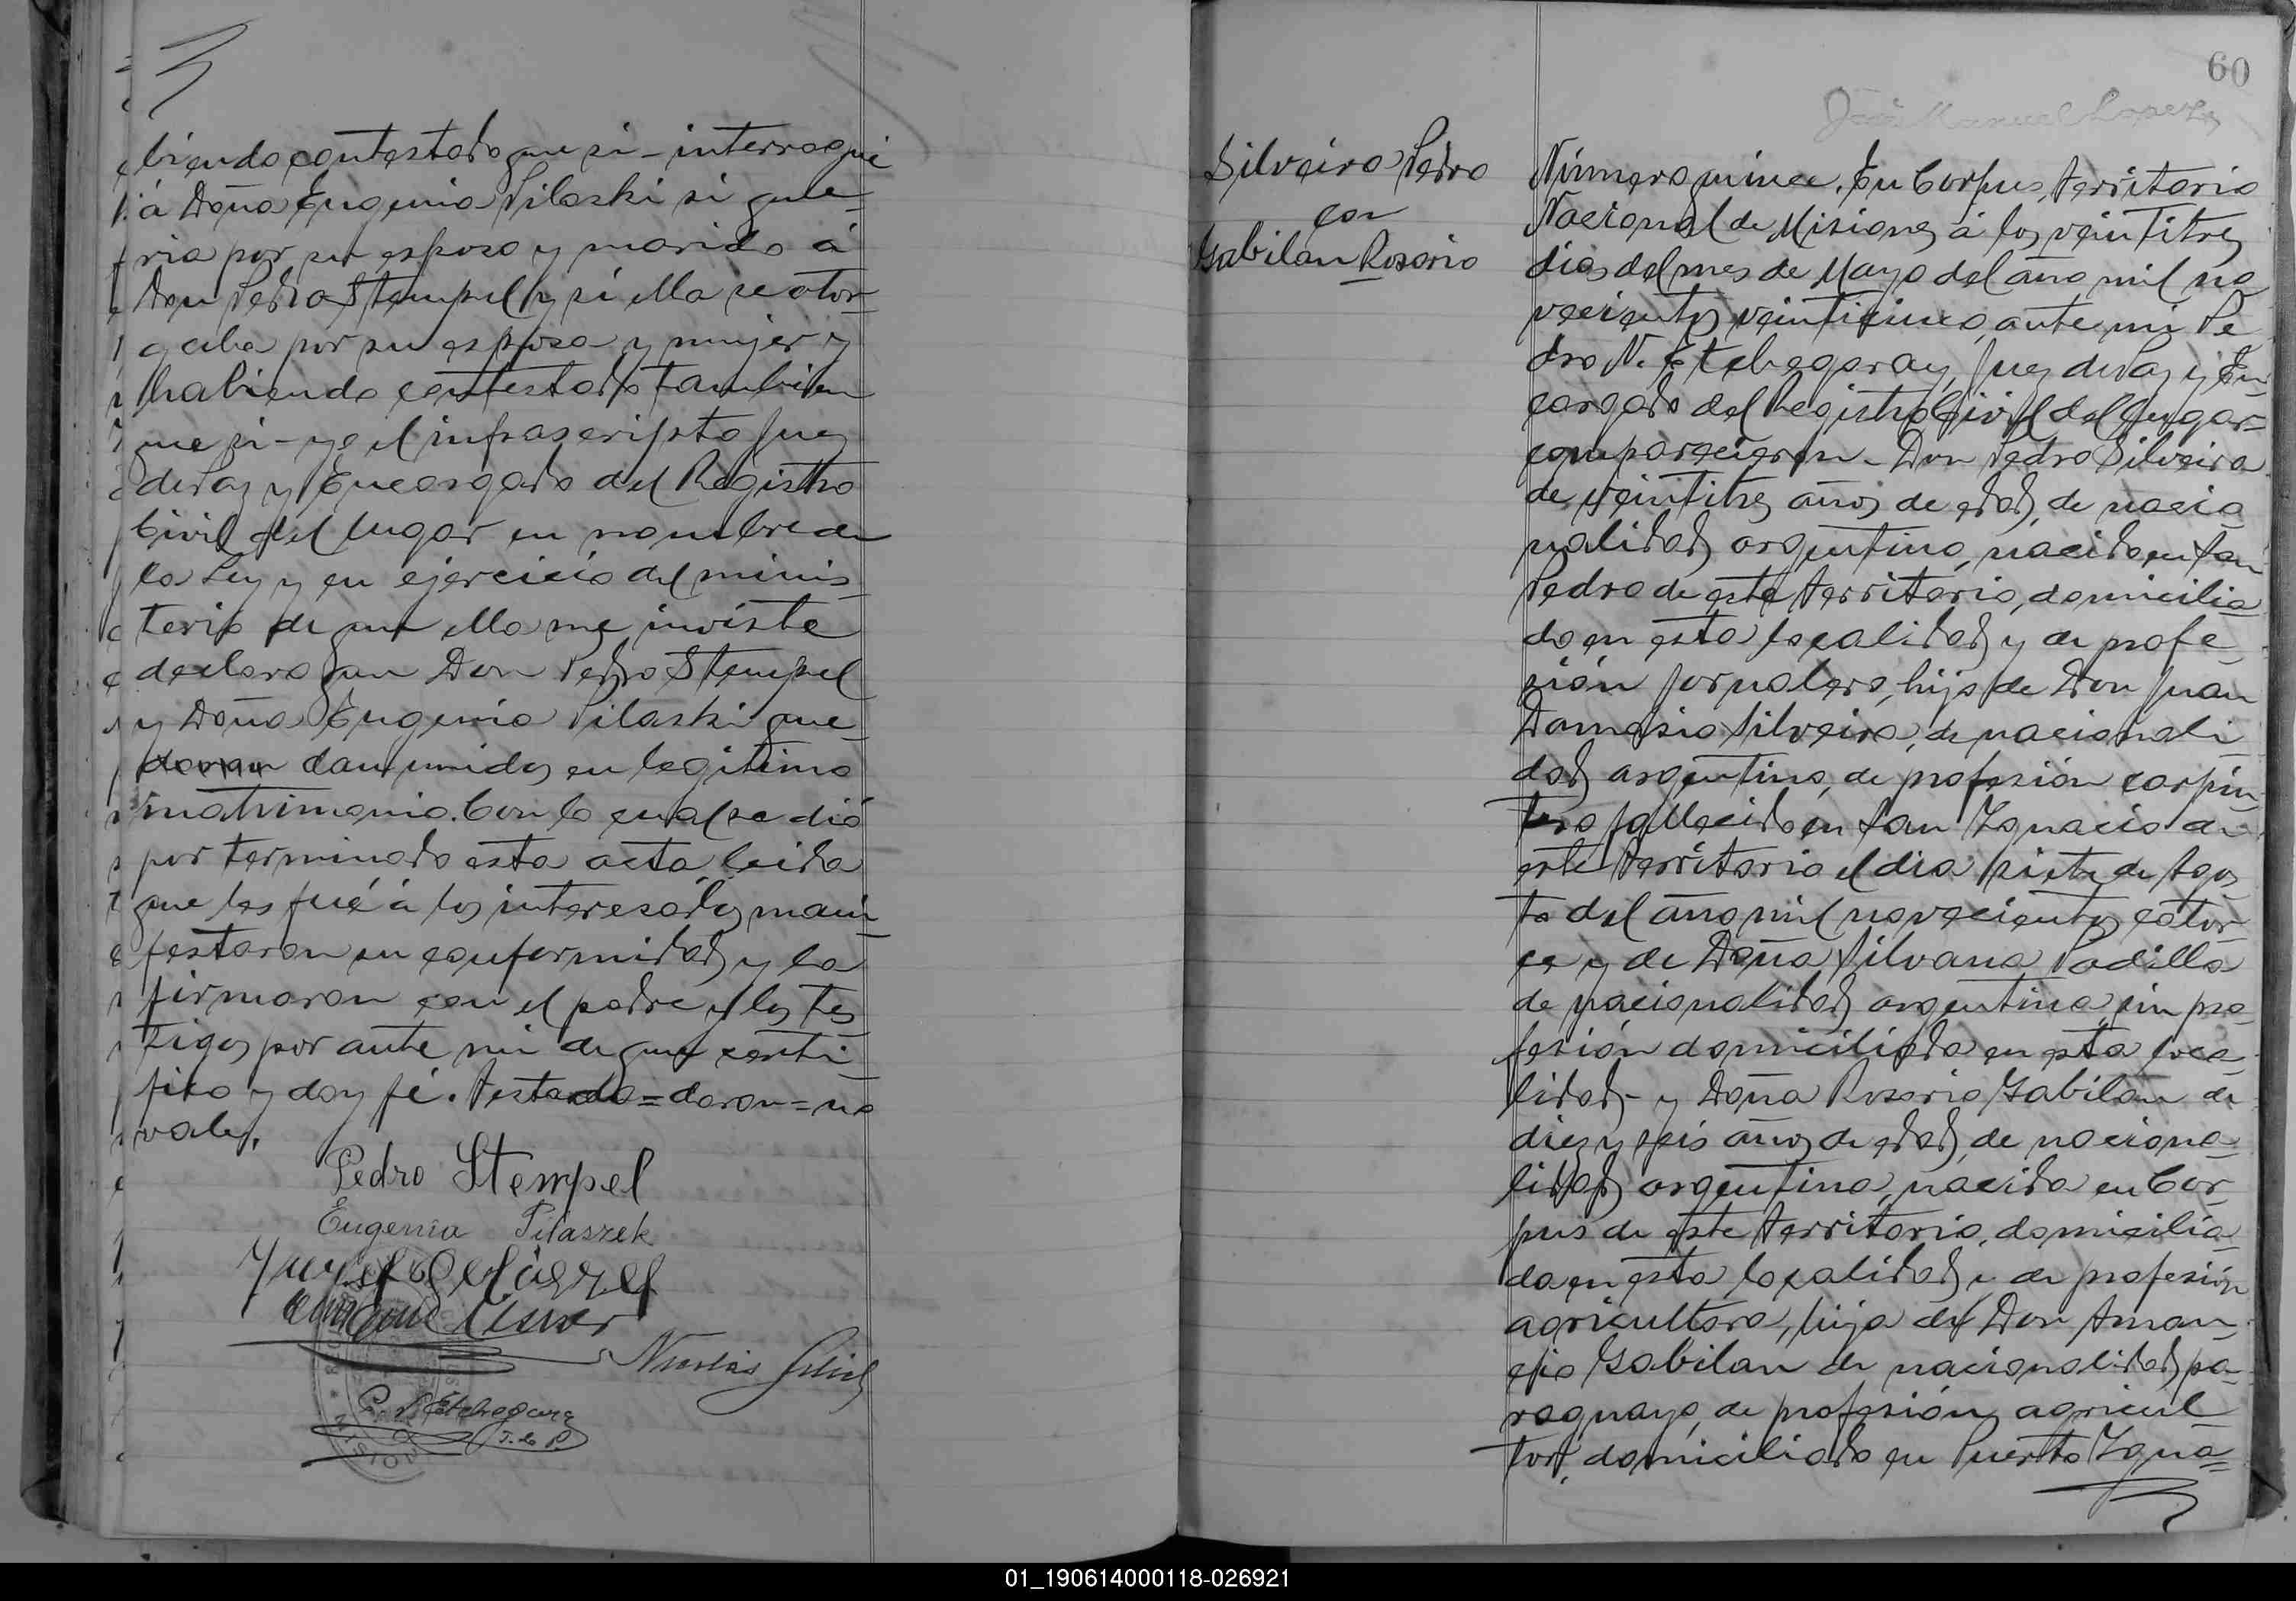 biendo contestado que si – interrogué
á Doña Eugenia Pilaski si que-
ria por su esposo y marido á
Don Pedro Stempel y si ella se otor-
gaba por su esposa y mujer y
habiendo contestado tambien
que si – yo el infrascripto Juez
de Paz y Encargado del Registro
Civil del lugar en nombre de
la Ley y en ejercicio del minis-
terio de que ella me inviste
declaro que Don Pedro Stempel
y Doña Eugenia Pilaski que-
daron dan unidos en legitimo
matrimonio. Con lo cual se dió
por terminado esta acta, leida
que les fué á los interesados mani-
festaron su conformidad y la
firmaron con el padre y los tes-
tigos por ante mi de que certi-
fico y doy fé. Testado = daron = no
vale.
Pedro Stempel
Eugenia Pilaszek
Nicolás
P. N. Etchegaray
J. de P.
60
José Manuel Lopez
Silveira Pedro
con
Gabilan Rosario
Número quince. En Corpus, territorio
Nacional de Misiones á los veintitres
dias del mes de Mayo del año mil no
vecientos veinticinco, ante mi Pe
dro N. Etchegaray, Juez de Paz y En-
cargado del Registro Civil del lugar-
comparecieron – Don Pedro Silveira
de veintitres años de edad, de nacio
nalidad argentino, nacido en San
Pedro de este territorio, domicilia
do en esta localidad y de profe-
sión jornalero, hijo de Don Juan
Damasio Silveira, de nacionali
dad argentino, de profesión carpin-
tero fallecido en San Ignacio de
este territorio el dia siete de Agos
to del año mil novecientos cator-
ce y de Doña Silvana Padilla
de nacionalidad argentina, sin pro-
fesión domiciliada en esta loca-
lidad – y Doña Rosario Gabilan de
diez y seis años de edad, de naciona-
lidad argentina, nacida en Cor-
pus de este territorio, domicilia-
da en esta localidad y de profesión
agricultora, hija de Don Aman-
cio Gabilan de nacionalidad pa-
raguayo, de profesión agricul-
tor, domiciliado en Puerto Igua=
01_190614000118-026921